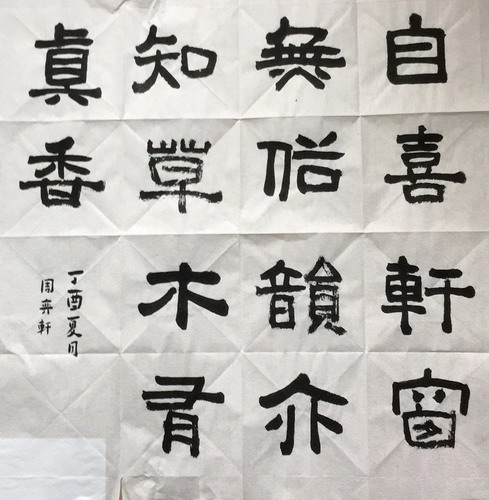 自喜軒窗
無俗韻亦
知草木有
真香
丁酉夏月
周奕軒